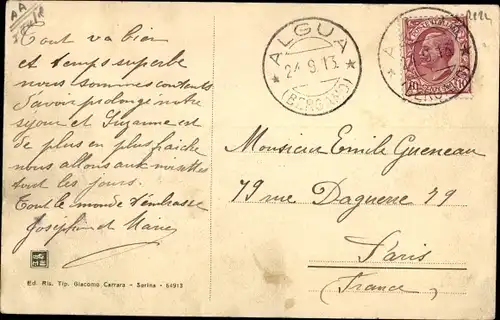 AA
Tout va bien
et temps superbe
nous sommes contents
d'avoir prolongé notre
séjour et Suzanne est
de plus en plus fraîche
nous allons aux noisettes
tout les jours.
Tout le monde t'embrasse
Joséphine et Marie
Ed. Ris. Tip. Giacomo Carrara - Serina - 64913
ALGUA
24.9.13.
(BERGAMO)
Monsieur Emile Gueneau
79 rue Daguerre 79
Paris
(France)